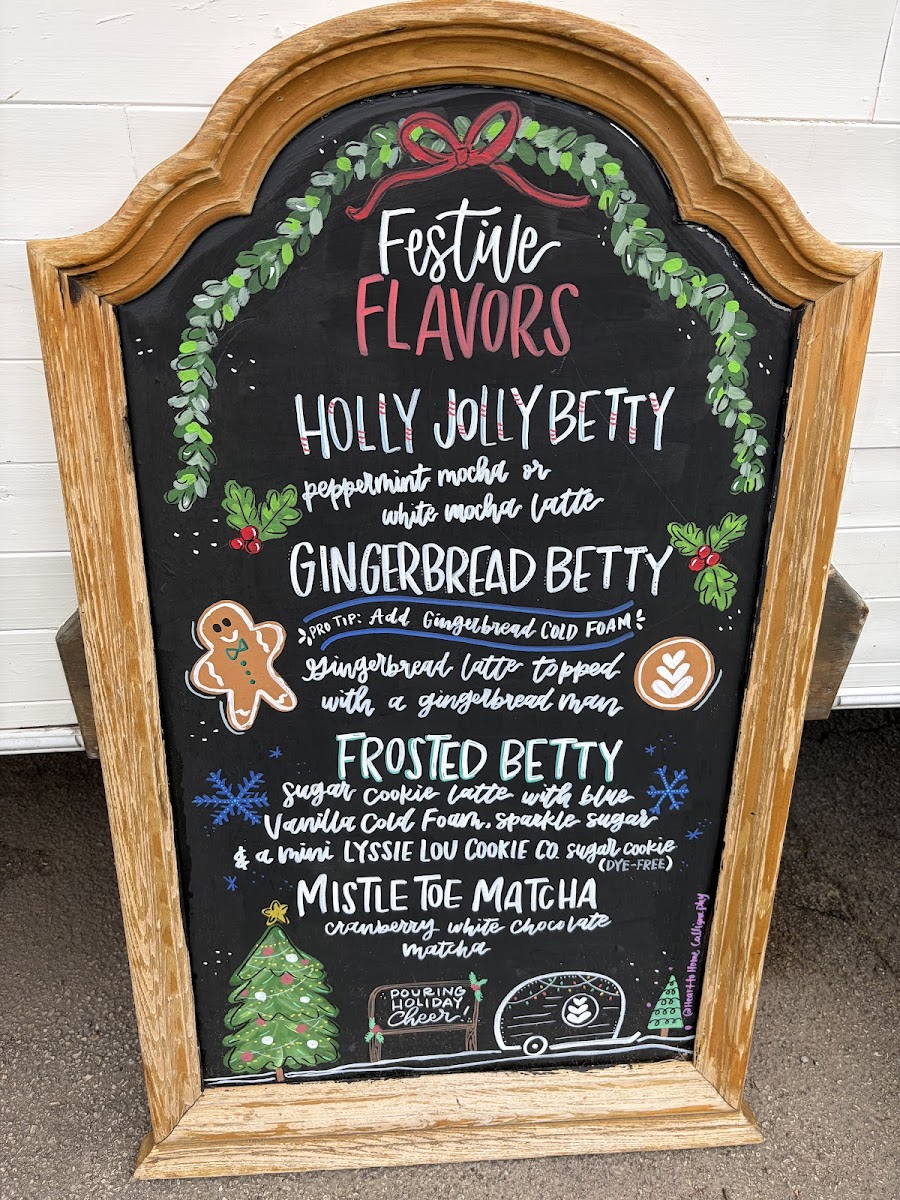 Festive
FLAVORS
HOLLY JOLLY BETTY
peppermint mocha or
white mocha latte
GINGERBREAD BETTY
PRO TIP: Add Gingerbread COLD FOAM
Gingerbread latte topped
with a gingerbread man
FROSTED BETTY
sugar cookie latte with blue
Vanilla Cold Foam, sparkle sugar
& a mini LYSSIE LOU COOKIE CO. sugar cookie
(DYE-FREE)
MISTLE TOE MATCHA
cranberry white chocolate
matcha
POURING
HOLIDAY
Cheer!
@Heart to Home Calligraphy